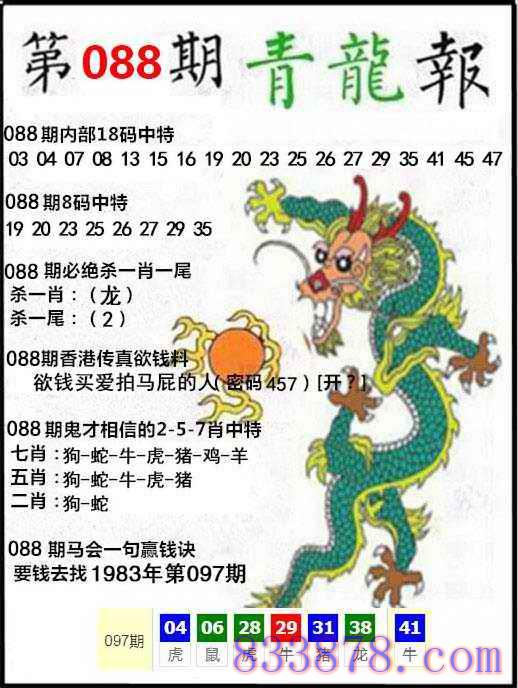 第088期 青龍報
088期内部18码中特
03 04 07 08 13 15 16 19 20 23 25 26 27 29 35 41 45 47
088期8码中特
19 20 23 25 26 27 29 35
088 期必绝杀一肖一尾
杀一肖：（龙）
杀一尾：（2）
088期香港传真欲钱料
欲钱买爱拍马屁的人（密码457）[开？]
088期鬼才相信的2-5-7肖中特
七肖：狗-蛇-牛-虎-猪-鸡-羊
五肖：狗-蛇-牛-虎-猪
二肖：狗-蛇
088 期马会一句赢钱诀
要钱去找1983年第097期
097期 04 06 28 29 31 38 41
虎 鼠 虎 牛 猪 龙 牛
833878.com